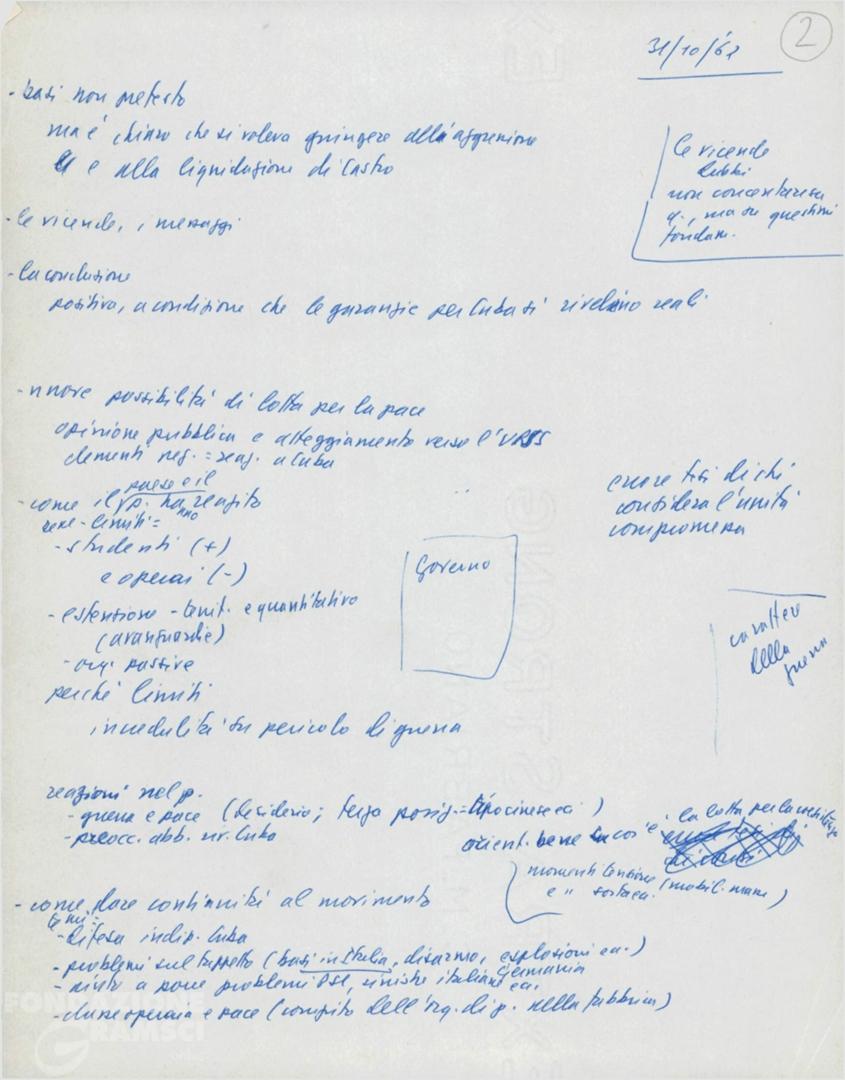 2
31/10/62
- basi non pretesto
ma è chiaro che si voleva giungere all'aggressione
e alla liquidazione di Castro
le vicende
dubbi
non concentrarsi
q., ma su questioni
fondam.
- le vicende, i messaggi
- la conclusione
positiva, a condizione che le garanzie per Cuba si rivelino reali
- nuove possibilità di lotta per la pace
opinione pubblica e atteggiamento verso l'URSS
elementi neg. = reag. a Cuba
paese e il
- come il p. hanno reagito
limiti =
- studenti (+)
e operai (-)
- estensione - territ. e quantitativa
(avanguardie)
- org. passive
perché limiti
incredulità su pericolo di guerra
errore tesi di chi
considera l'unità
compromessa
Governo
carattere
della
guerra
reazioni nel p.
- guerra e pace (desiderio; terza posiz. = tipo cinese ecc.)
- preocc. abb. su Cuba
orient. bene cos'è la lotta per la coesistenza
momenti tensione (mobil. mass.)
e "
- come dare continuità al movimento
temi =
- difesa indip. Cuba
- problemi sul tappeto (basi in Italia, disarmo, esplosioni ecc.)
Germania
- aiuto a porre problemi PSI, sinistre italiane ecc.
- classe operaia e pace (compito dell'org. di p. nella fabbrica)
FONDAZIONE
GRAMSCI